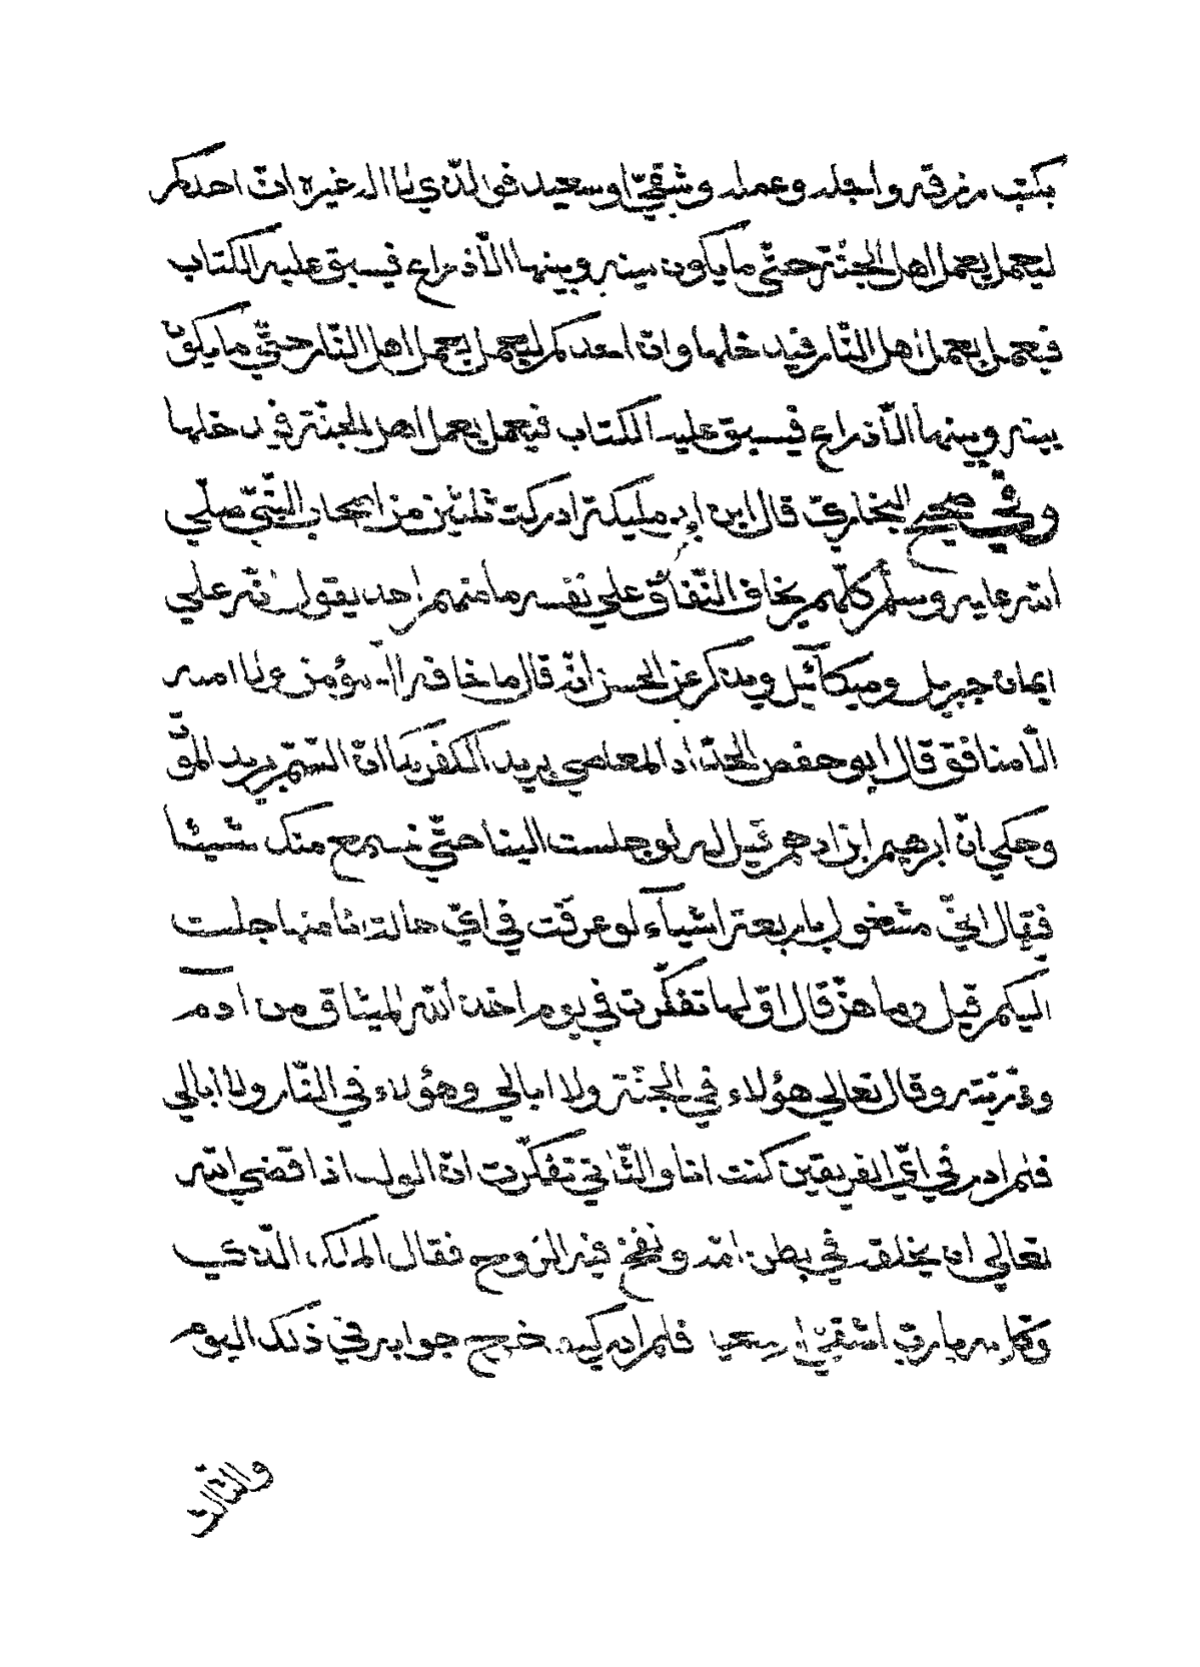 بكتب رزقه واجله وعمله وشقيّ او سعيد فو الذي لا اله غيره انّ احدكم
ليعمل بعمل اهل الجنّة حتّى ما يكون بينه وبينها الّا ذراع فيسبق عليه الكتاب
فيعمل بعمل اهل النّار فيدخلها وانّ احدكم ليعمل بعمل اهل النّار حتّي ما يكون
بينه وبينها الّا ذراع فيسبق عليه الكتاب فيعمل بعمل اهل الجنّة فيدخلها
وفي صحيح البخاريّ قال ابن ابي مليكة ادركت ثلثين من اصحاب النّبيّ صلّي
الله عليه وسلّم كلّهم يخاف النّفاق علي نفسه ما منهم احد يقول انّه علي
ايمان جبريل وميكآئيل ويذكر عن الحسن انّه قال ما خافه الّا مؤمن ولا امنه
الّا منافق قال ابو حفص الحدّاد المعاصي بريد الكفر كما انّ السّمّ بريد الموت
وحكي انّ ابرهيم ابن ادهم قيل له لو جلست الينا حتّي نسمع منك شيئا
فقال انّي مشغول باربعة اشيآء لو عرفت في ايّ حالة انا منها جلست
اليكم قيل وما هنّ قال اوّلها تفكّرت في يوم اخذ الله الميثاق من آدم
وذرّيته وقال تعالي هؤلاء في الجنّة ولا ابالي وهؤلاء في النّار ولا ابالي
فلم ادر في ايّ الفريقين كنت انا والثّاني تفكّرت انّ الولد اذا قضي الله
تعالي ان يخلقه في بطن امّه ونفخ فيه الرّوح فقال الملك الّذي
وكّل به يا ربّ اشقيّ ام سعيد فلم ادر كيف خرج جوابه في ذلك اليوم
والثالث